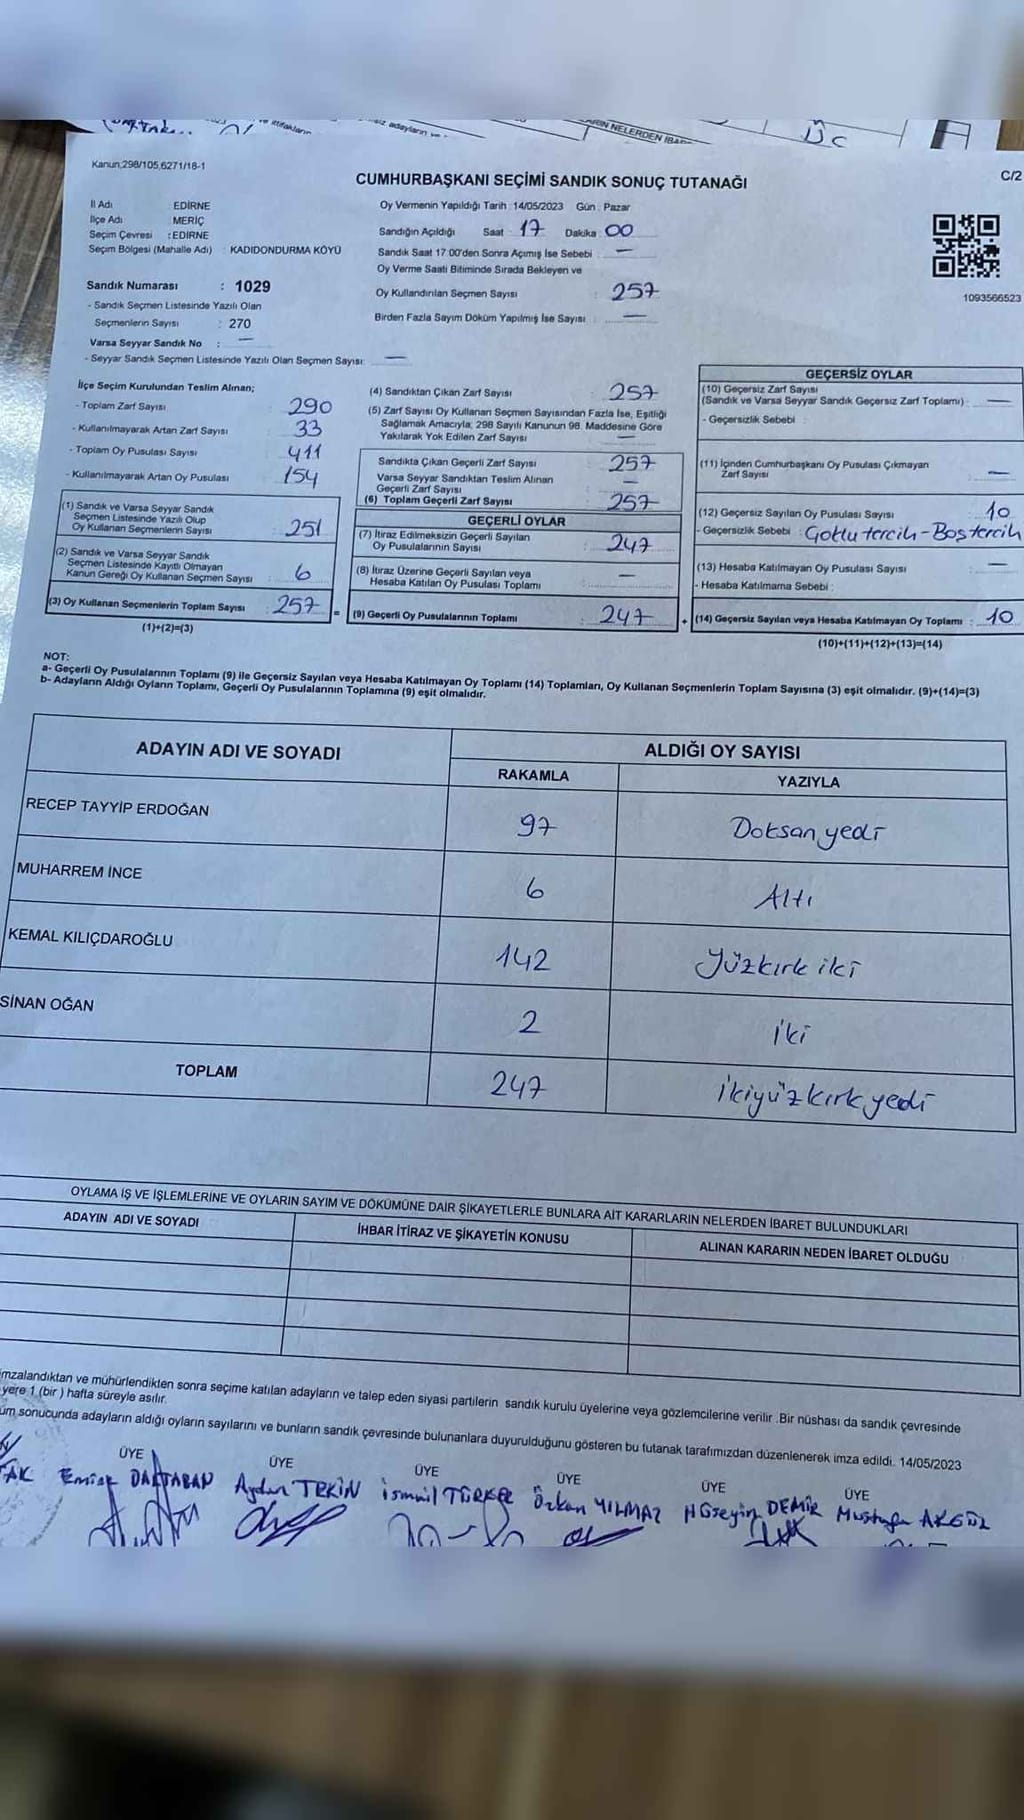 Kanun,298/105,6271/18-1
CUMHURBAŞKANI SEÇİMİ SANDIK SONUÇ TUTANAĞI
C/2
İl Adı EDİRNE
İlçe Adı MERİÇ
Seçim Çevresi :EDİRNE
Seçim Bölgesi (Mahalle Adı) : KADIDONDURMA KÖYÜ
Sandık Numarası : 1029
- Sandık Seçmen Listesinde Yazılı Olan
Seçmenlerin Sayısı : 270
Varsa Seyyar Sandık No : —
- Seyyar Sandık Seçmen Listesinde Yazılı Olan Seçmen Sayısı: —
Oy Vermenin Yapıldığı Tarih :14/05/2023 Gün : Pazar
Sandığın Açıldığı Saat : 17 Dakika : 00
Sandık Saat 17.00'den Sonra Açımış İse Sebebi : —
Oy Verme Saati Bitiminde Sırada Bekleyen ve
Oy Kullandırılan Seçmen Sayısı : 257
Birden Fazla Sayım Döküm Yapılmış İse Sayısı : —
1093566523
İlçe Seçim Kurulundan Teslim Alınan;
- Toplam Zarf Sayısı : 290
- Kullanılmayarak Artan Zarf Sayısı : 33
- Toplam Oy Pusulası Sayısı : 411
- Kullanılmayarak Artan Oy Pusulası : 154
(1) Sandık ve Varsa Seyyar Sandık
Seçmen Listesinde Yazılı Olup
Oy Kullanan Seçmenlerin Sayısı : 251
(2) Sandık ve Varsa Seyyar Sandık
Seçmen Listesinde Kayıtlı Olmayan
Kanun Gereği Oy Kullanan Seçmen Sayısı : 6
(3) Oy Kullanan Seçmenlerin Toplam Sayısı : 257 =
(1)+(2)=(3)
(4) Sandıktan Çıkan Zarf Sayısı : 257
(5) Zarf Sayısı Oy Kullanan Seçmen Sayısından Fazla İse, Eşitliği
Sağlamak Amacıyla; 298 Sayılı Kanunun 98. Maddesine Göre
Yakılarak Yok Edilen Zarf Sayısı : —
Sandıkta Çıkan Geçerli Zarf Sayısı : 257
Varsa Seyyar Sandıktan Teslim Alınan
Geçerli Zarf Sayısı : —
(6) Toplam Geçerli Zarf Sayısı : 257
GEÇERLİ OYLAR
(7) İtiraz Edilmeksizin Geçerli Sayılan
Oy Pusulalarının Sayısı : 247
(8) İtiraz Üzerine Geçerli Sayılan veya
Hesaba Katılan Oy Pusulası Toplamı : —
(9) Geçerli Oy Pusulalarının Toplamı : 247 +
GEÇERSİZ OYLAR
(10) Geçersiz Zarf Sayısı
(Sandık ve Varsa Seyyar Sandık Geçersiz Zarf Toplamı) : —
- Geçersizlik Sebebi :
(11) İçinden Cumhurbaşkanı Oy Pusulası Çıkmayan
Zarf Sayısı : —
(12) Geçersiz Sayılan Oy Pusulası Sayısı : 10
- Geçersizlik Sebebi : Çoklu tercih-Boş tercih
(13) Hesaba Katılmayan Oy Pusulası Sayısı : —
- Hesaba Katılmama Sebebi :
(14) Geçersiz Sayılan veya Hesaba Katılmayan Oy Toplamı : 10
(10)+(11)+(12)+(13)=(14)
NOT:
a- Geçerli Oy Pusulalarının Toplamı (9) ile Geçersiz Sayılan veya Hesaba Katılmayan Oy Toplamı (14) Toplamları, Oy Kullanan Seçmenlerin Toplam Sayısına (3) eşit olmalıdır. (9)+(14)=(3)
b- Adayların Aldığı Oyların Toplamı, Geçerli Oy Pusulalarının Toplamına (9) eşit olmalıdır.
ADAYIN ADI VE SOYADI ALDIĞI OY SAYISI
RAKAMLA YAZIYLA
RECEP TAYYİP ERDOĞAN 97 Doksan yedi
MUHARREM İNCE 6 Altı
KEMAL KILIÇDAROĞLU 142 Yüzkırk iki
SİNAN OĞAN 2 iki
TOPLAM 247 ikiyüzkırk yedi
OYLAMA İŞ VE İŞLEMLERİNE VE OYLARIN SAYIM VE DÖKÜMÜNE DAİR ŞİKAYETLERLE BUNLARA AİT KARARLARIN NELERDEN İBARET BULUNDUKLARI
ADAYIN ADI VE SOYADI İHBAR İTİRAZ VE ŞİKAYETİN KONUSU ALINAN KARARIN NEDEN İBARET OLDUĞU
imzalandıktan ve mühürlendikten sonra seçime katılan adayların ve talep eden siyasi partilerin sandık kurulu üyelerine veya gözlemcilerine verilir .Bir nüshası da sandık çevresinde
yere 1 (bir ) hafta süreyle asılır.
üm sonucunda adayların aldığı oyların sayılarını ve bunların sandık çevresinde bulunanlara duyurulduğunu gösteren bu tutanak tarafımızdan düzenlenerek imza edildi. 14/05/2023
ÜYE ÜYE ÜYE ÜYE ÜYE ÜYE
Aydın TEKİN ismail TÜRKER Özkan YILMAZ Hüseyin DEMİR Mustafa AKGÜL